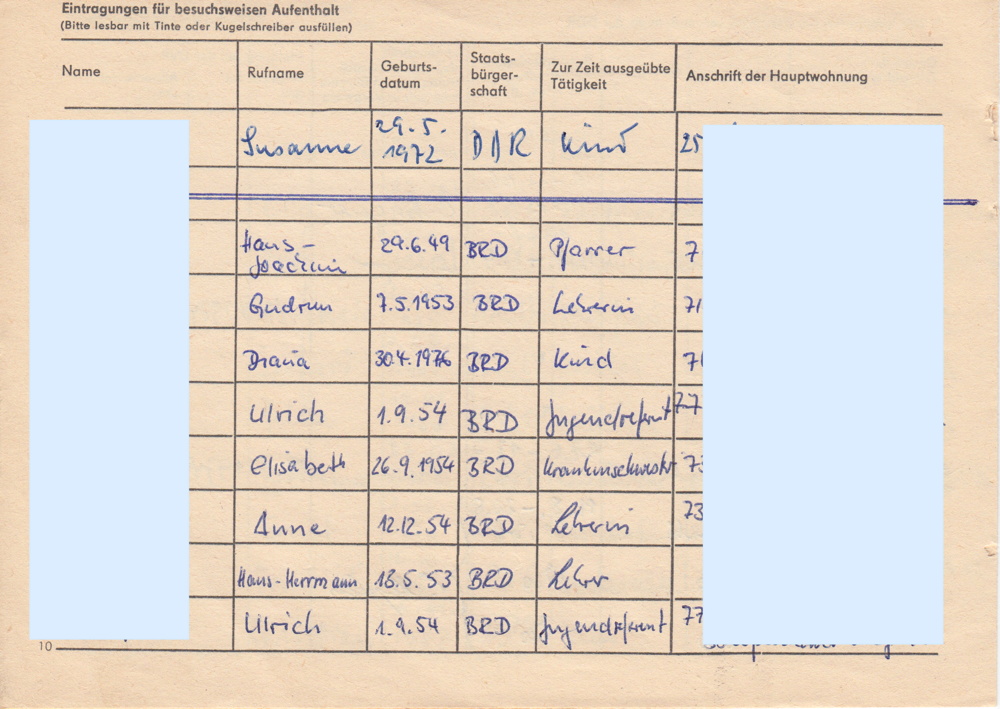 Eintragungen für besuchsweisen Aufenthalt
(Bitte lesbar mit Tinte oder Kugelschreiber ausfüllen)
Name Rufname Geburts-datum Staats-bürger-schaft Zur Zeit ausgeübte Tätigkeit Anschrift der Hauptwohnung
Susanne 29.5.1972 DDR Kind 25
Hans-Joachim 29.6.49 BRD Pfarrer 7
Gudrun 7.5.1953 BRD Lehrerin 71
30.4.1976 BRD Kind 7
Ulrich 1.9.54 BRD Jugendreferent 77
Elisabeth 26.9.1954 BRD Krankenschwester 73
Anne 12.12.54 BRD Lehrerin 73
Hans-Herrmann 18.5.53 BRD Lehrer
Ulrich 1.9.54 BRD Jugendreferent 77
10